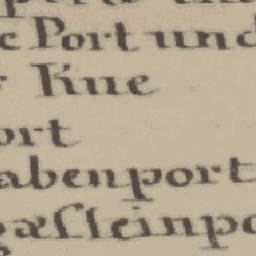 c Port und
Kue
ort
abenport
gæsseinpo